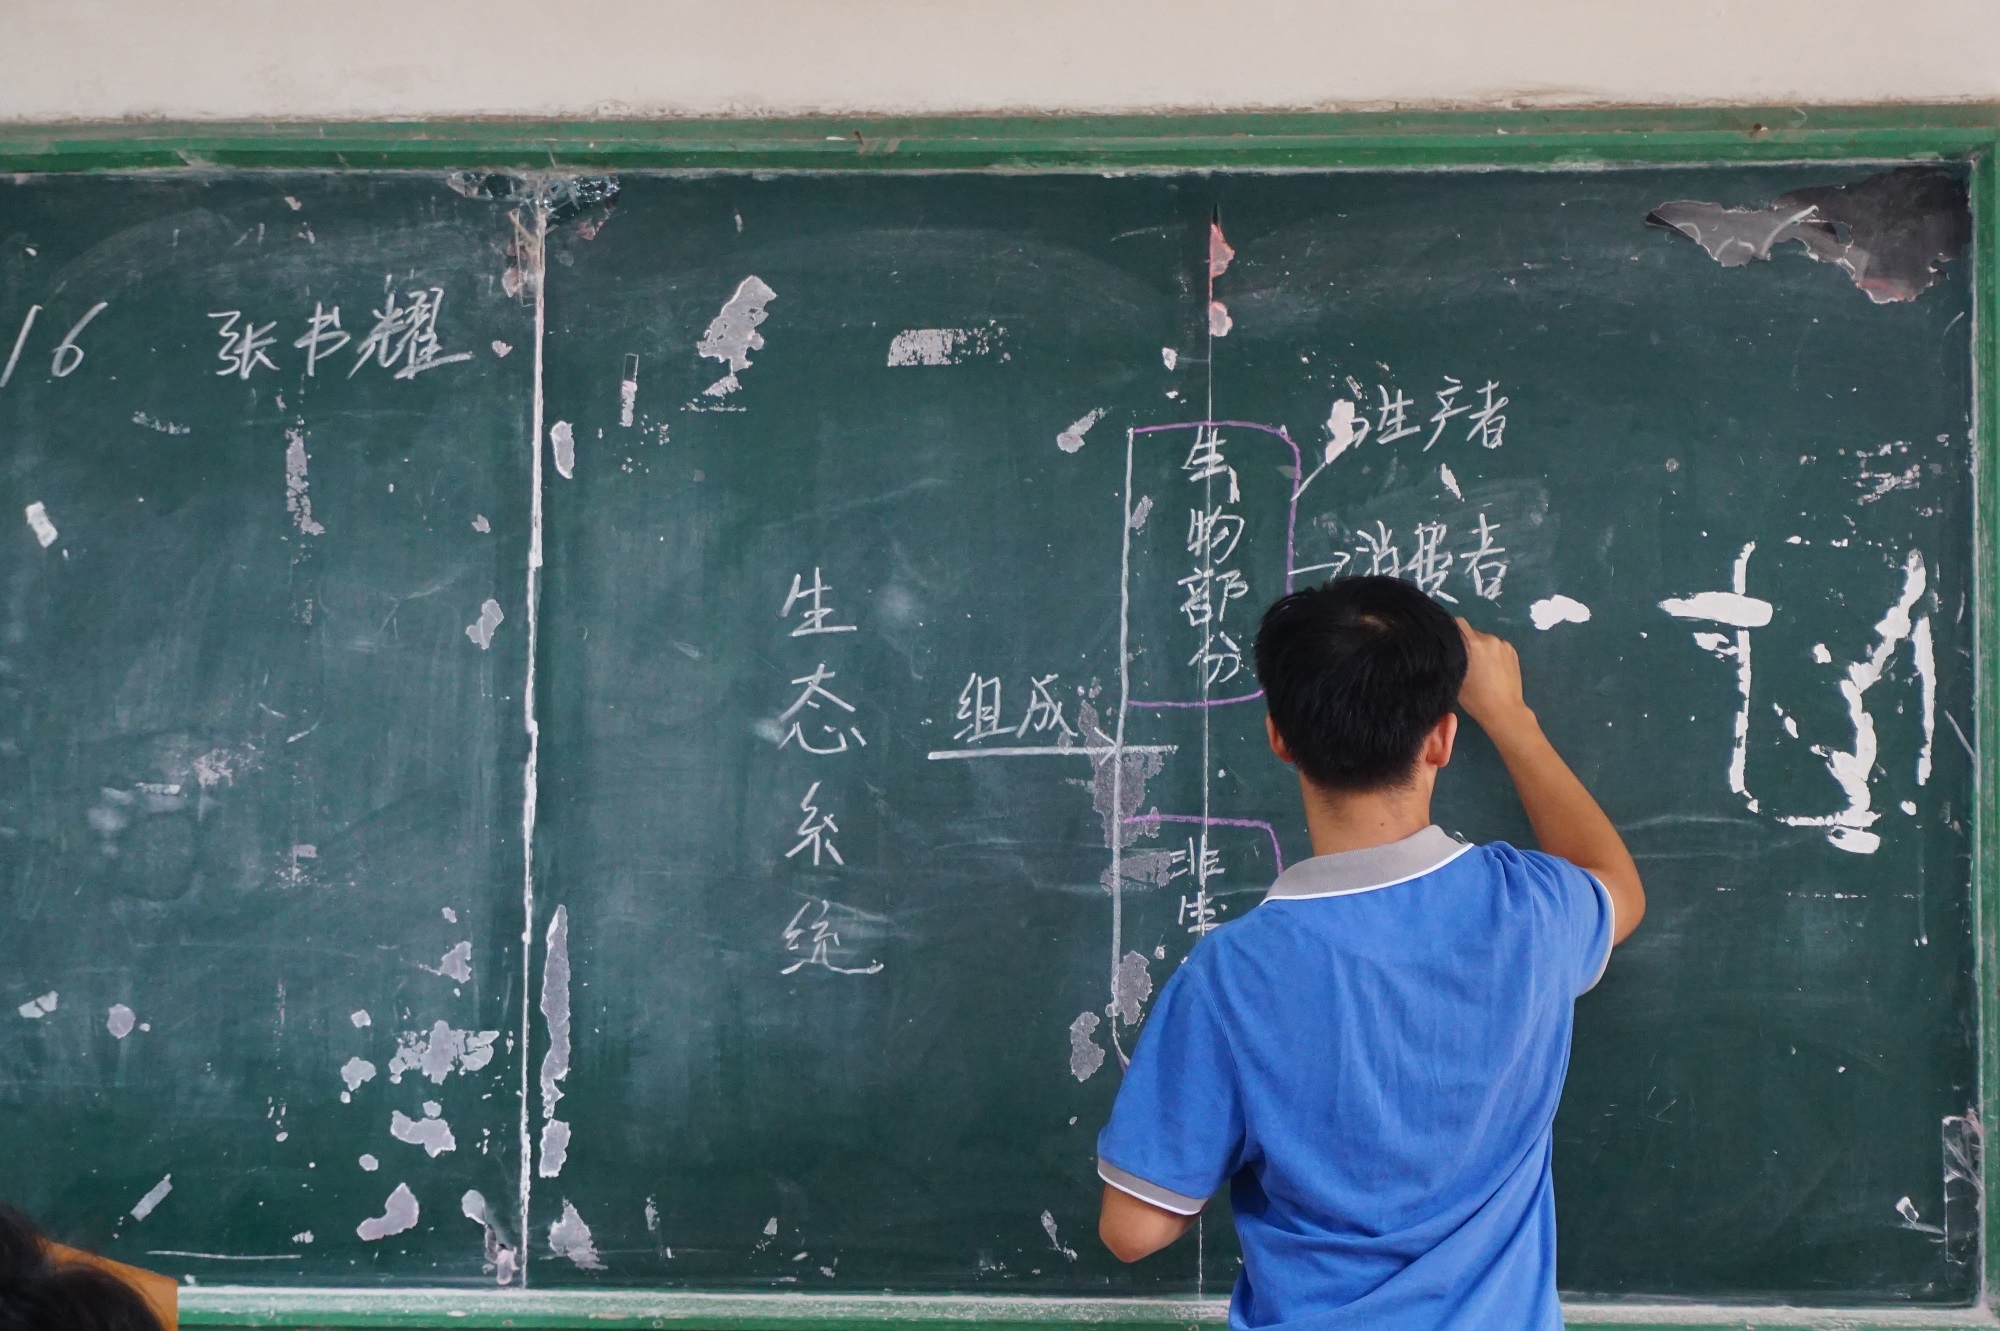 16 张书耀
生态系统
组成
生物部分
生产者
消费者
非生